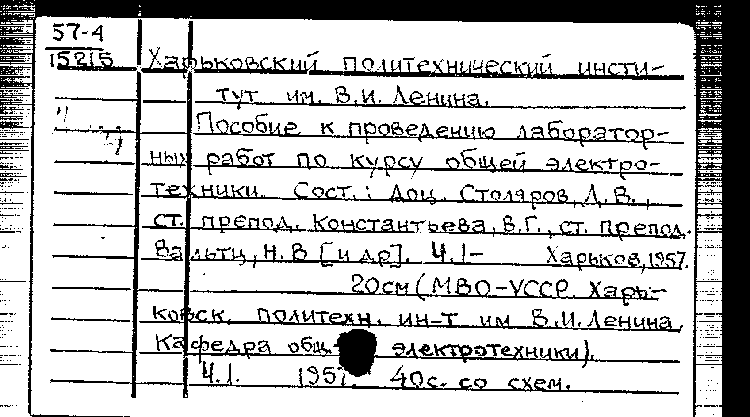 57-4
15215
Харьковский политехнический инсти-
тут им. В.И. Ленина.
Пособие к проведению лаборатор-
ных работ по курсу общей электро-
техники. Сост.: Доц. Столяров, Л.В.,
ст. препод. Константьева, В.Г., ст. препод.
Вальтц, Н.В [и др]. Ч.1- Харьков, 1957.
20см (МВО-УССР. Харь-
ковск. политехн. ин-т им В.И. Ленина,
Кафедра общ. электротехники).
Ч.1. 1957. 40с. со схем.